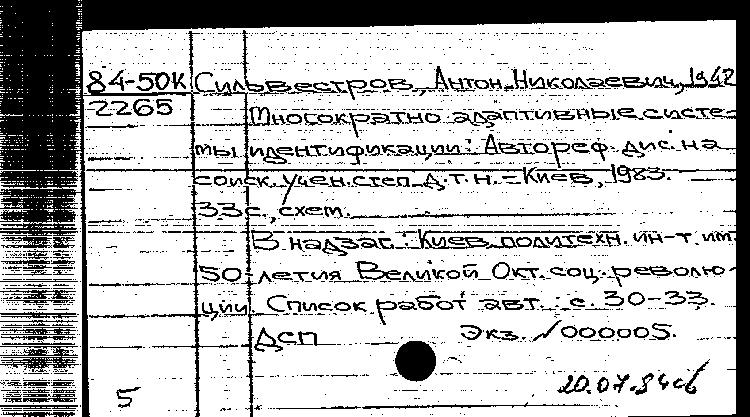 84-50К Сильвестров, Антон Николаевич, 1942
2265 Многократно адаптивные систе-
мы идентификации: Автореф. дис. на
соиск. учен. степ. д.т.н. - Киев, 1983. -
33с., схем.
В надзаг.: Киев. политехн. ин-т им.
50-летия Великой Окт. соц. револю-
ции. Список работ авт.: с. 30-33.
ДСП Экз. №000005.
20.07.84
5